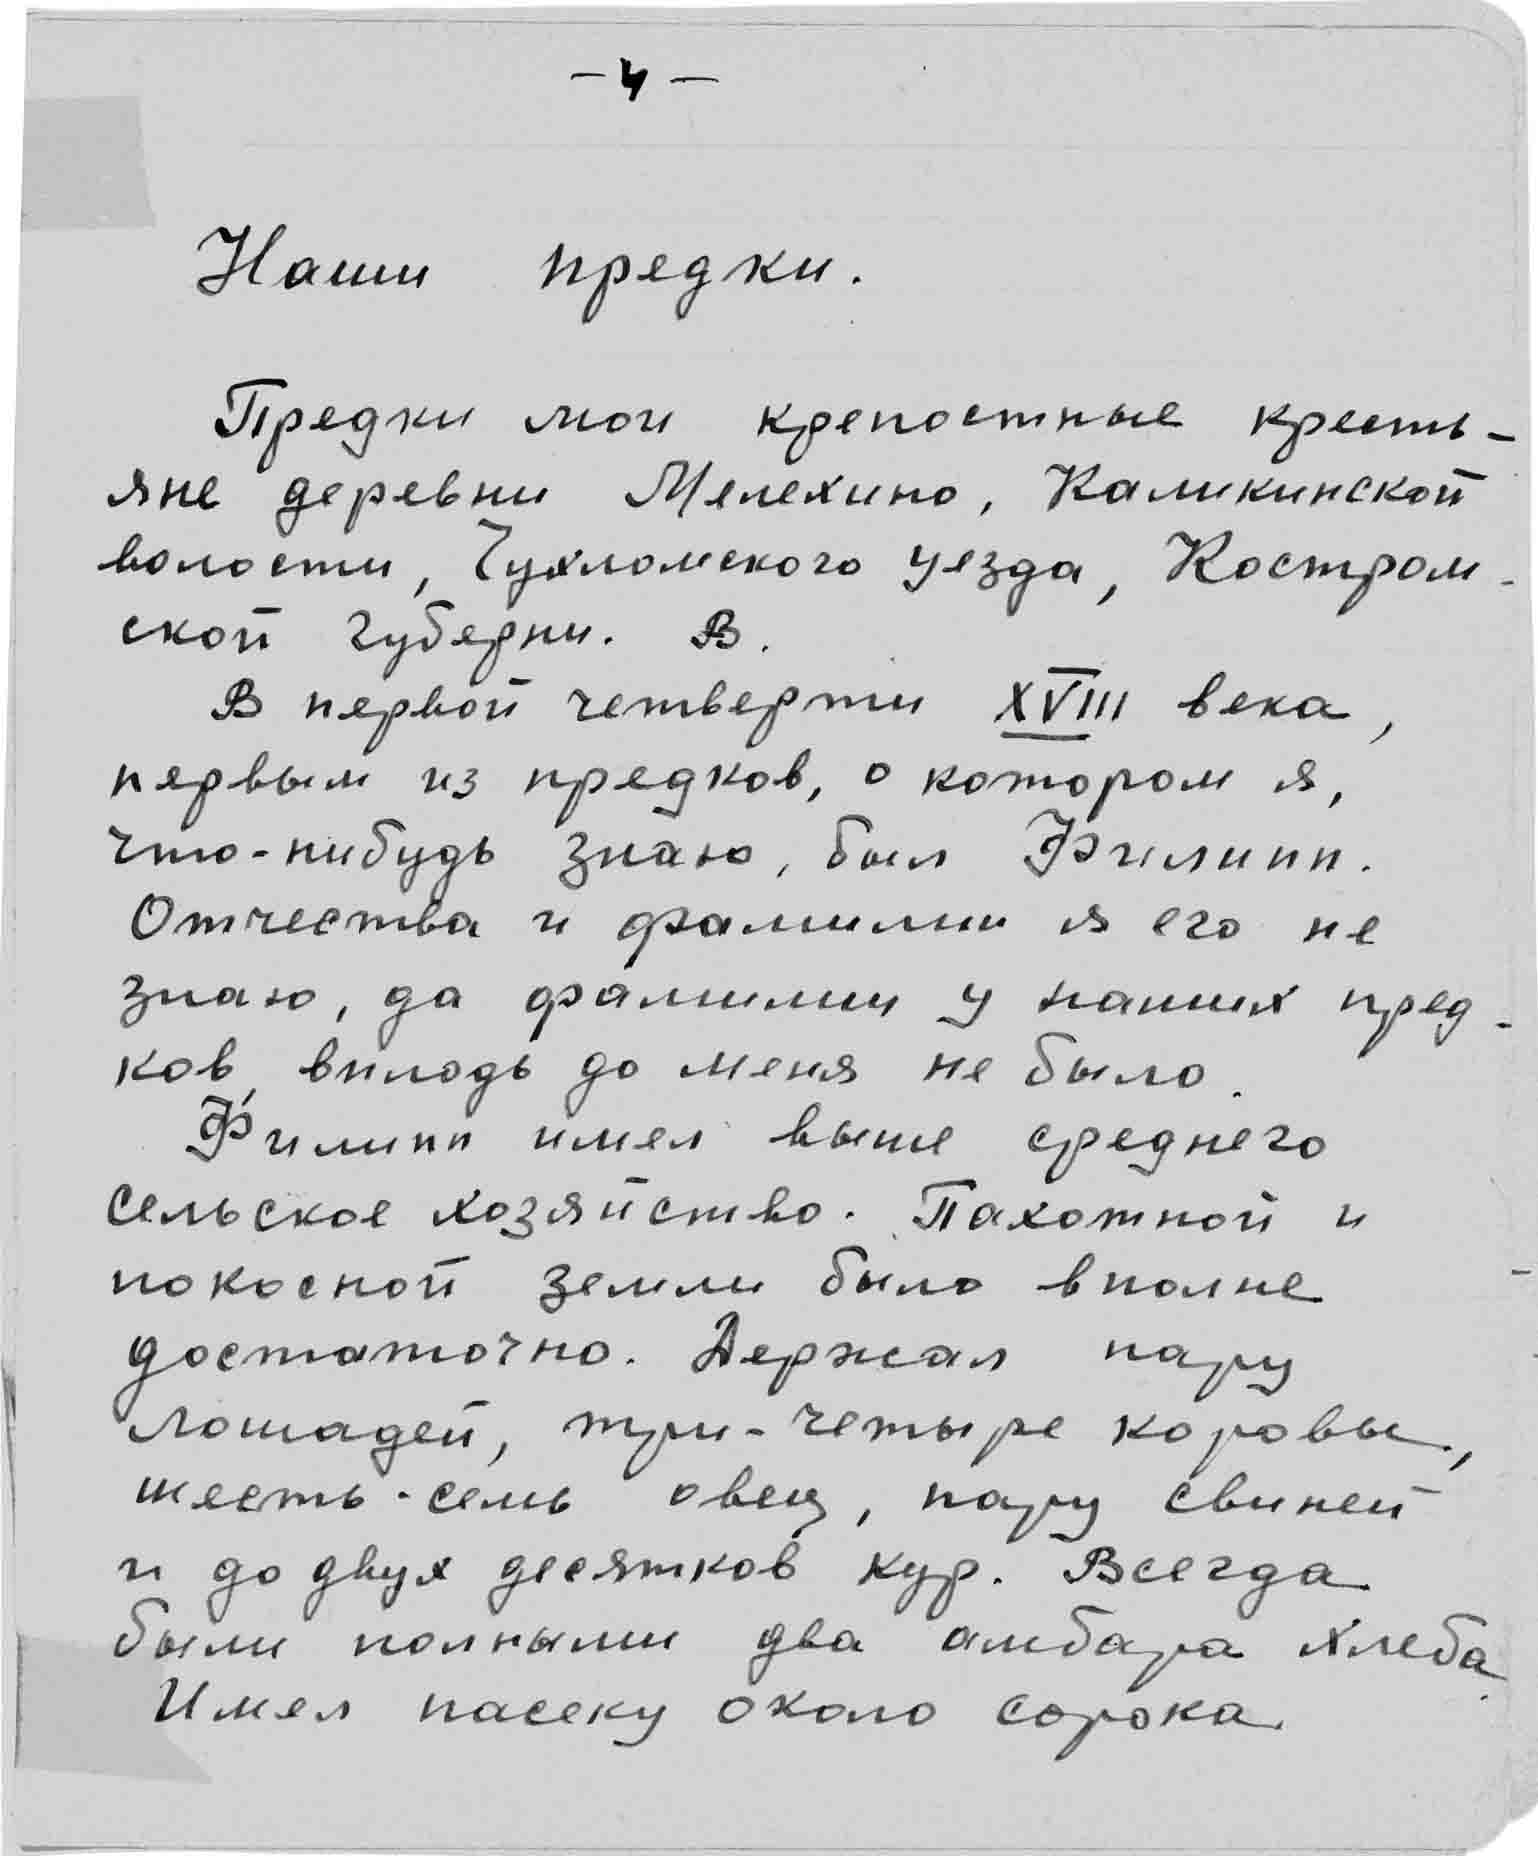 - 4 -
Наши предки.
Предки мои крепостные кресть-
яне деревни Мелехино, Каликинской
волости, Чухломского уезда, Костром-
ской губерни. В.
В первой четверти XVIII века,
первым из предков, о котором я,
что-нибудь знаю, был Филипп.
Отчества и фамилии я его не
знаю, да фамилии у наших пред-
ков, вплодь до меня не было.
Филипп имел выше среднего
сельское хозяйство. Пахотной и
покосной земли было вполне
достаточно. Держал пару
лошадей, три-четыре коровы,
шесть-семь овец, пару свиней
и до двух десятков кур. Всегда
были полными два амбара хлеба.
Имел пасеку около сорока